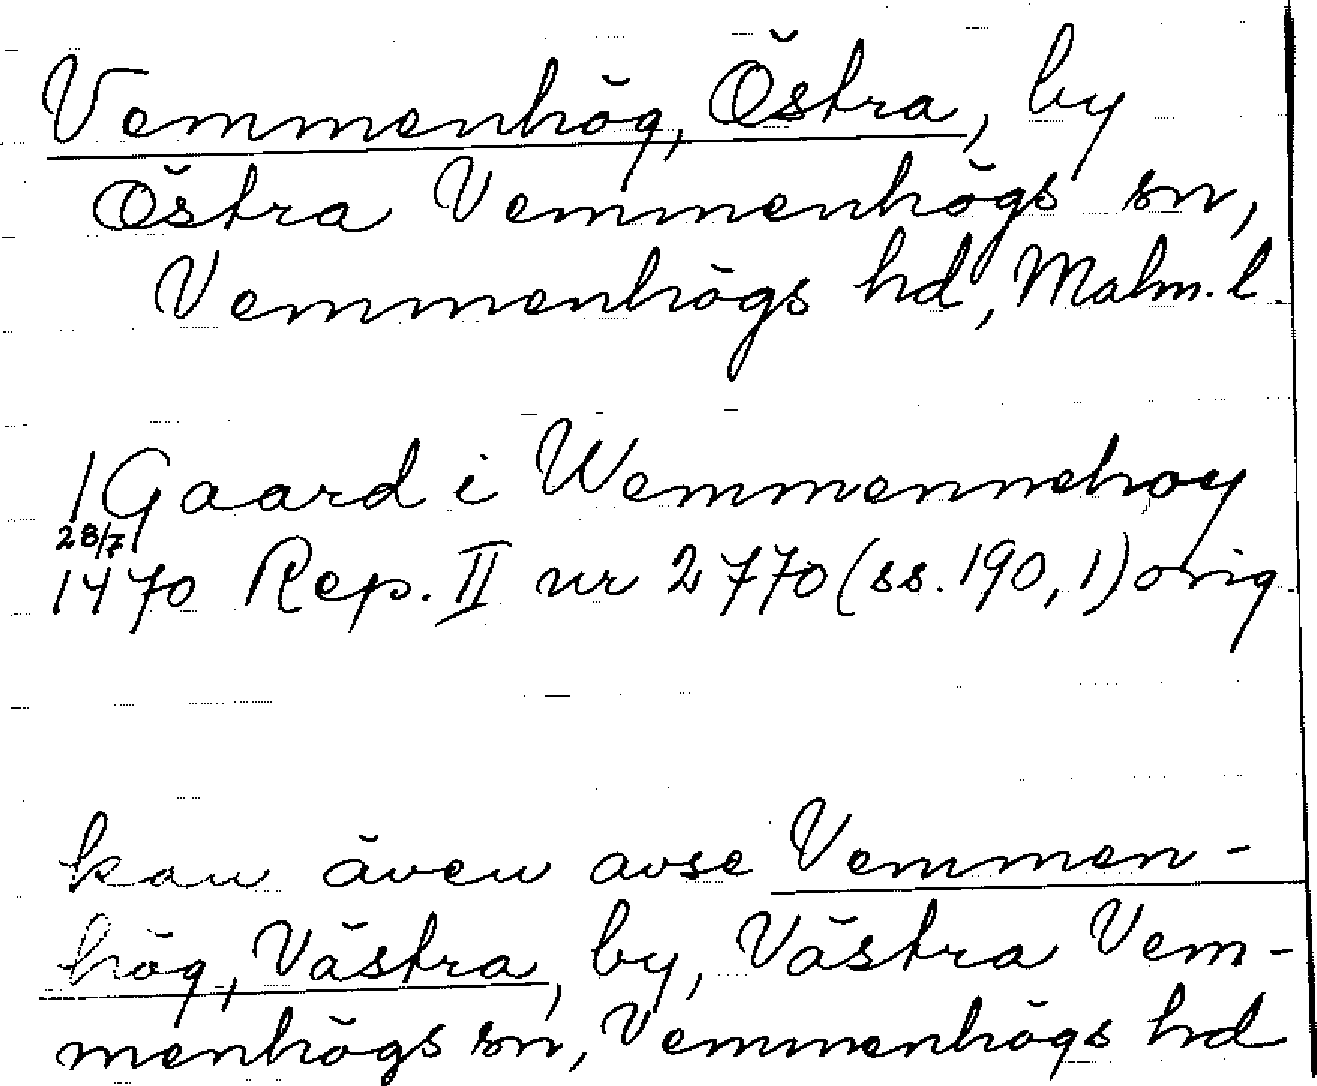 Vemmenhög, Östra, by
Östra Vemmenhögs sn,
Vemmenhögs hd, Malm. l.
1 Gaard i Wemmennehoy
28/7
1470 Rep. II nr 2770 (ss. 190, 1) orig
kan även avse Vemmen-
hög, Västra, by, Västra Vem-
menhögs sn, Vemmenhögs hd